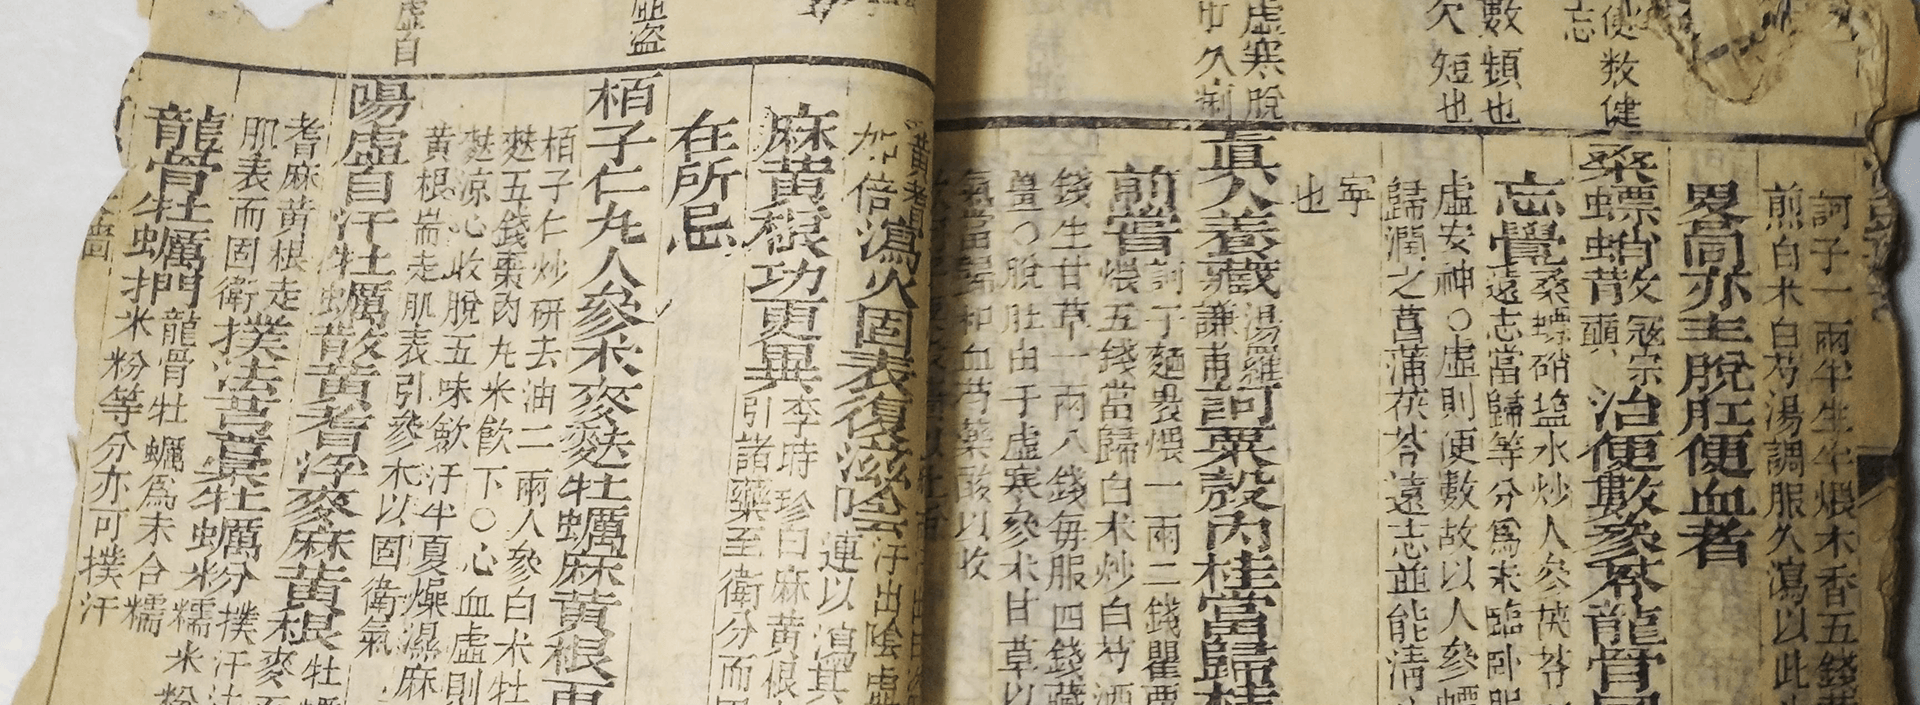 便数健
忘
數頻也
欠短也
虛寒脫
久瀉
訶子一兩半生半煨木香五錢黃
煎白朮白芍湯調服久瀉以此
畧同亦主脫肛便血者
桑螵蛸散治便數參苓龍骨同
寇宗奭
桑螵蛸塩水炒人參茯苓
遠志當歸等分爲末臨卧服
忘覺
虛安神〇虛則便數故以人參螵
歸潤之菖蒲茯苓遠志並能清
寧
也
眞人養藏訶粟殼肉桂當歸桂
湯羅
謙甫
訶子麵裹煨一兩二錢罌粟
煨五錢當歸白朮炒白芍酒
煎嘗
錢生甘草一兩八錢每服四錢藏
薑〇脫肛由于虛寒參朮甘草以
氣當歸和血芍藥酸以收
虛盜
虛自
加倍瀉火固表復滋陰
汗出陰虛
連以瀉其
麻黃根功更異
李時珍曰麻黃根
引諸藥至衛分而
在所忌
柏子仁丸人參朮麥麩牡蠣麻黃根再
柏子仁炒研去油二兩人參白朮牡
麩五錢棗肉丸米飲下〇心血虛則
麩涼心收脫五味斂汗半夏燥濕麻
黃根耑走肌表引參朮以固衛氣
陽虛自汗牡蠣散黃耆浮麥麻黃根
牡蠣
耆麻黃根走
肌表而固衛
撲法藁本牡蠣粉
撲汗法
糯米粉
龍骨牡蠣捫
龍骨牡蠣爲末合糯
米粉等分亦可撲汗